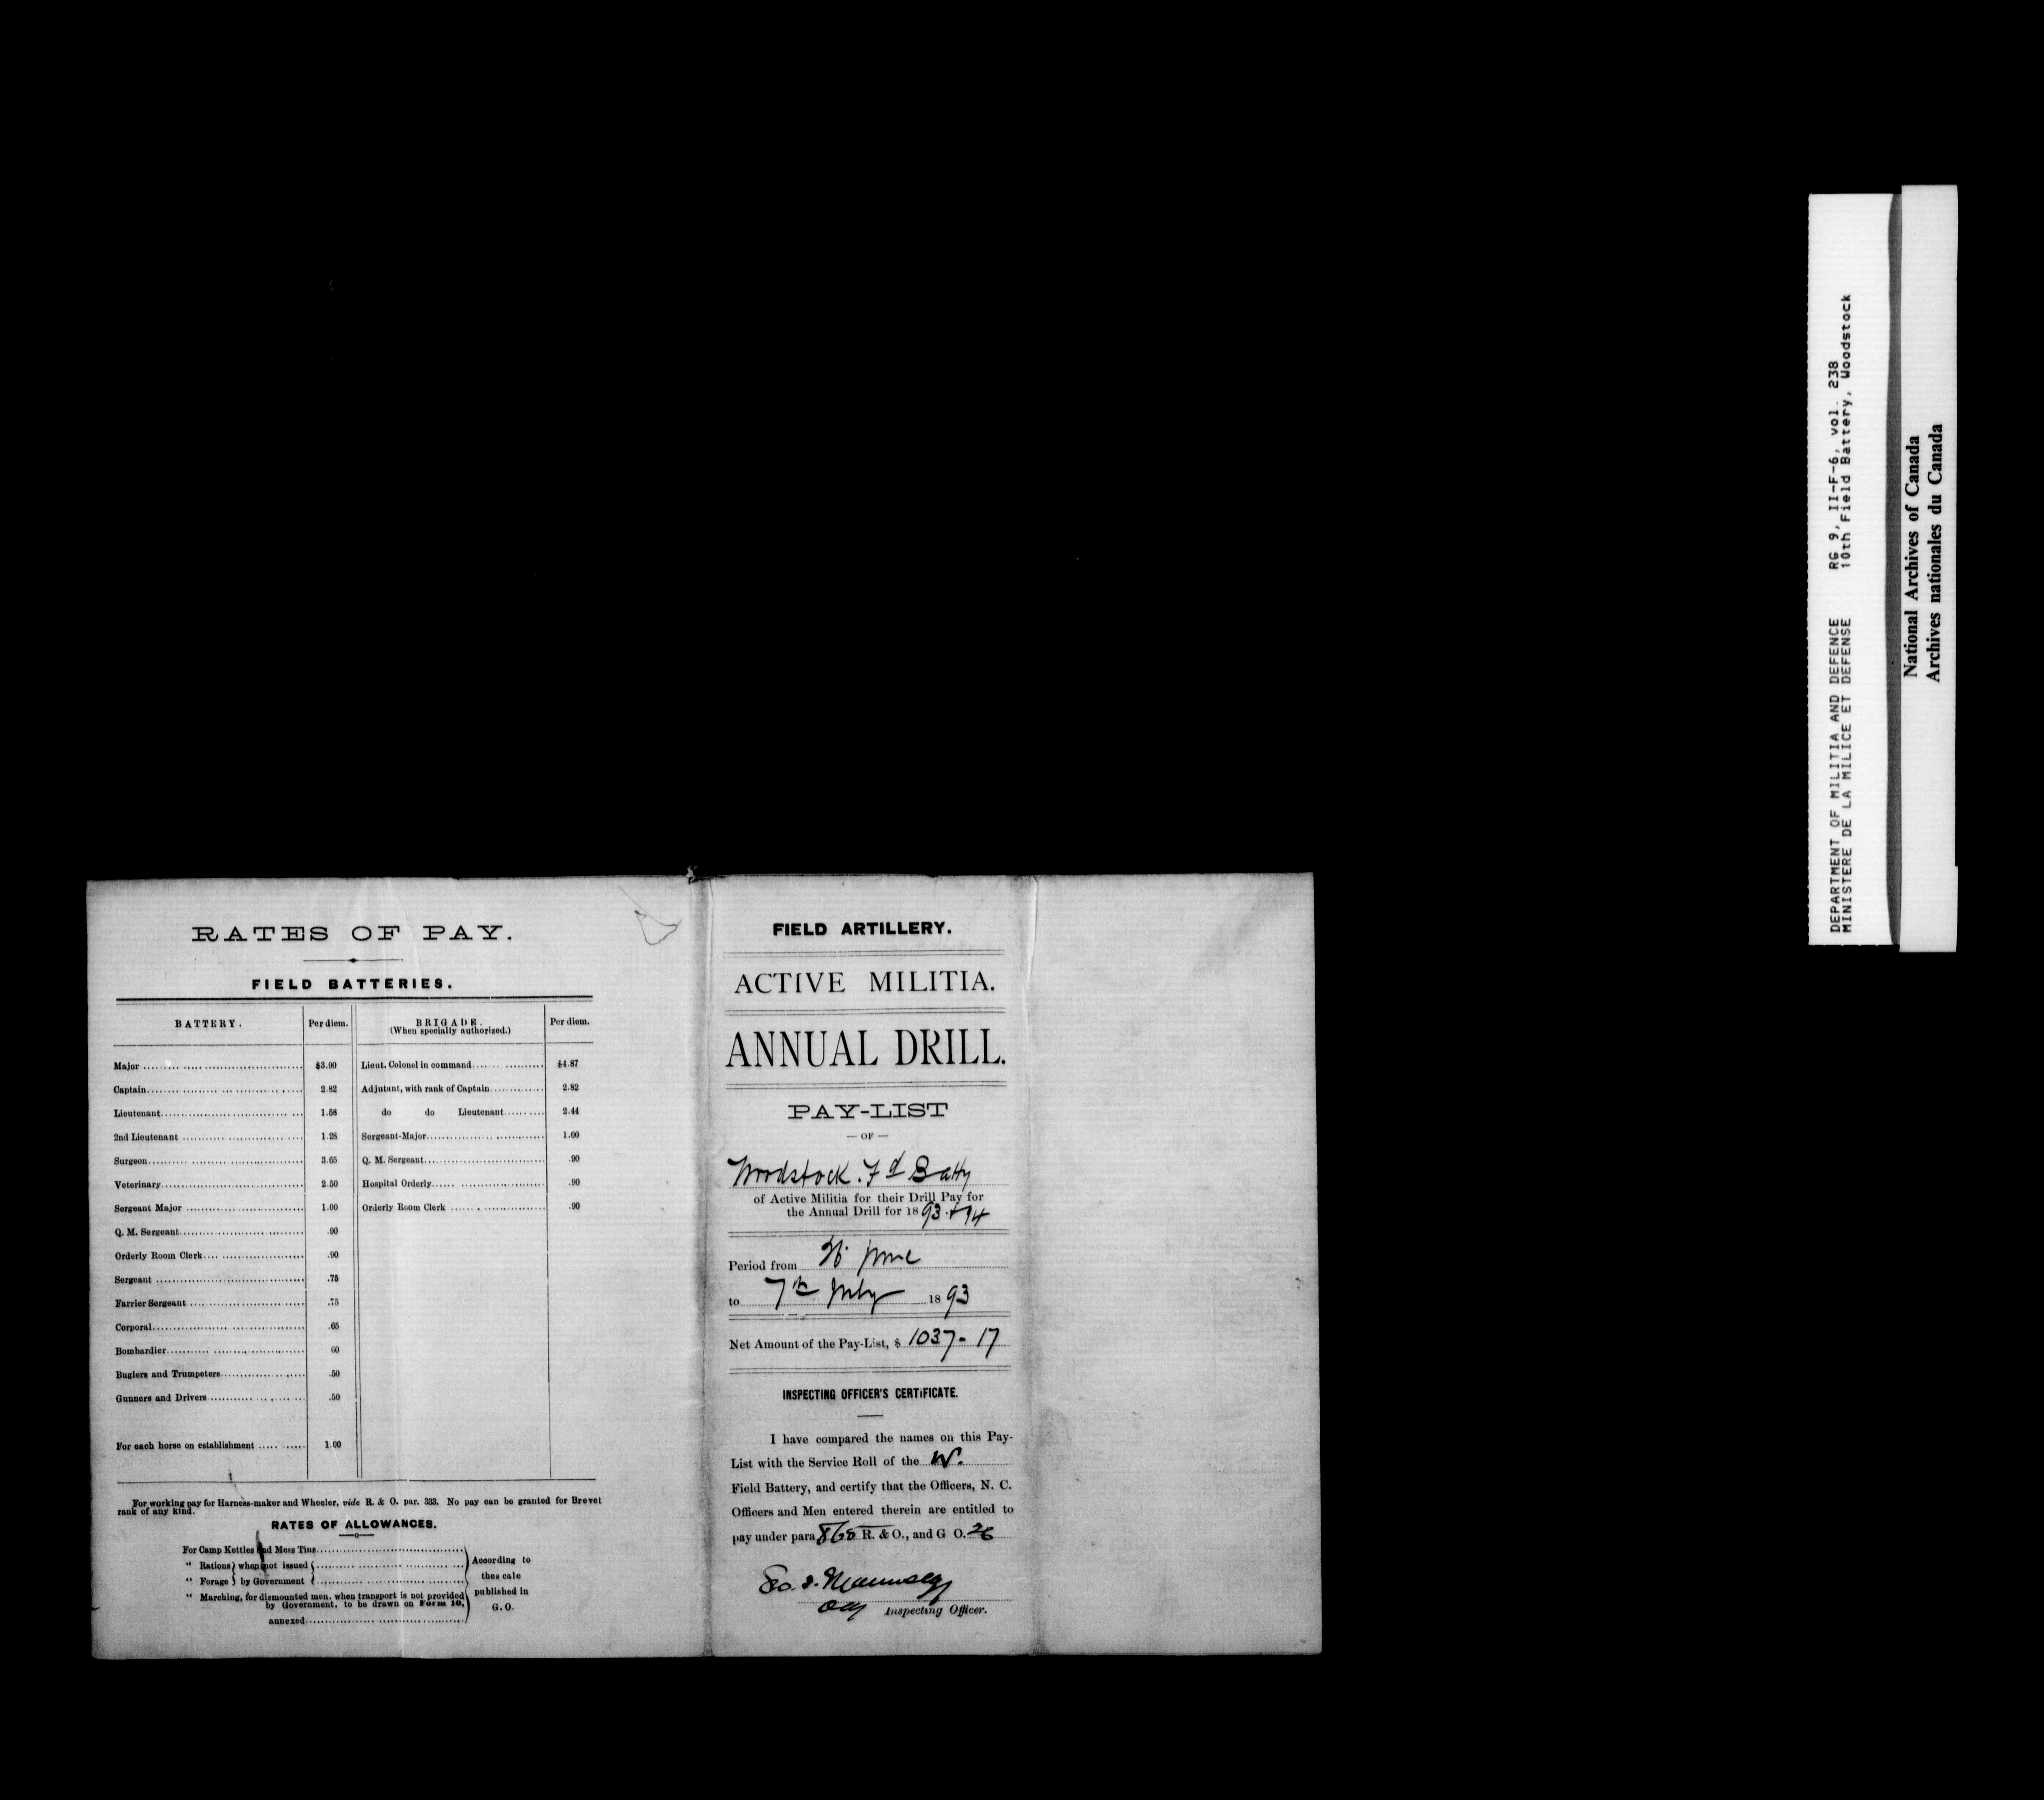 RATES OF PAY.
FIELD BATTERIES.
BATTERY. Per diem. BRIGADE. (When specially authorized.) Per diem.
Major $3.90 Lieut. Colonel in command $4.87
Captain 2.82 Adjutant, with rank of Captain 2.82
Lieutenant 1.58 do do Lieutenant 2.44
2nd Lieutenant 1.28 Sergeant-Major 1.00
Surgeon 3.65 Q. M. Sergeant .90
Veterinary 2.50 Hospital Orderly .90
Sergeant Major 1.00 Orderly Room Clerk .90
Q. M. Sergeant .90
Orderly Room Clerk .90
Sergeant .75
Farrier Sergeant .75
Corporal .65
Bombardier 60
Buglers and Trumpeters .50
Gunners and Drivers .50
For each horse on establishment 1.00
For working pay for Harness-maker and Wheeler, vide R. & O. par. 333. No pay can be granted for Brevet
rank of any kind.
RATES OF ALLOWANCES.
For Camp Kettles and Mess Tins
" Rations } when not issued {
" Forage } by Government {
" Marching, for dismounted men, when transport is not provided
by Government, to be drawn on Form 10,
annexed
According to
thes cale
published in
G. O.
FIELD ARTILLERY.
ACTIVE MILITIA.
ANNUAL DRILL.
PAY-LIST
— OF —
Woodstock. Fd Batty
of Active Militia for their Drill Pay for
the Annual Drill for 1893.+94
Period from June
to 7th July 1893
Net Amount of the Pay-List, $ 1037-17
INSPECTING OFFICER'S CERTIFICATE.
I have compared the names on this Pay-
List with the Service Roll of the W.
Field Battery, and certify that the Officers, N. C.
Officers and Men entered therein are entitled to
pay under para 860 R. & O., and G O. 26
Geo. J. Maunsell
Inspecting Officer.
DEPARTMENT OF MILITIA AND DEFENCE RG 9, II-F-6, vol. 238
MINISTERE DE LA MILICE ET DEFENSE 10th Field Battery, Woodstock
National Archives of Canada
Archives nationales du Canada